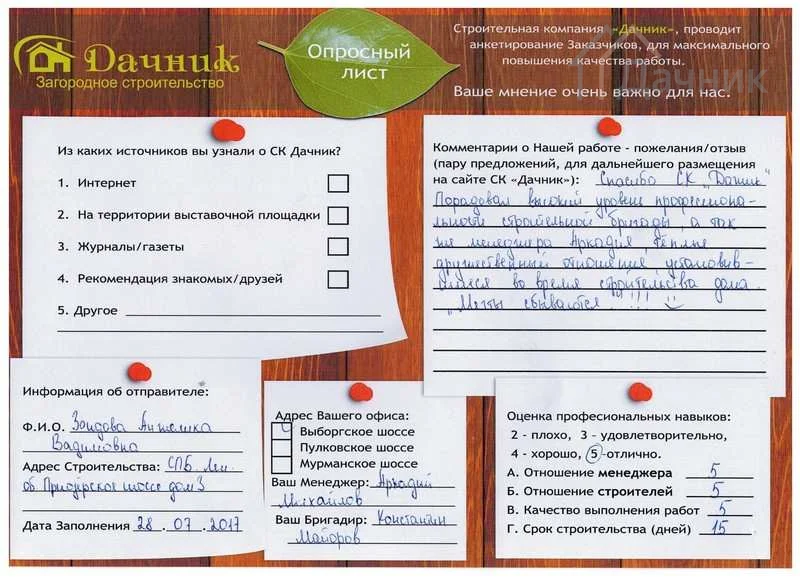 Дачник
Загородное строительство
Опросный
лист
Строительная компания «Дачник», проводит
анкетирование Заказчиков, для максимального
повышения качества работы.
Ваше мнение очень важно для нас.
Дачник
Из каких источников вы узнали о СК Дачник?
1. Интернет
2. На территории выставочной площадки
3. Журналы/газеты
4. Рекомендация знакомых/друзей
5. Другое
Комментарии о Нашей работе - пожелания/отзыв
(пару предложений, для дальнейшего размещения
на сайте СК «Дачник»): Спасибо СК "Дачник"
Порадовал высокий уровень профессиона-
льности строительной бригады, а так
же менеджера Аркадия, тёплые
дружественный отношения установив-
шиеся во время строительства дома.
"Мечты сбываются"!!!
Информация об отправителе:
Ф.И.О. Анжелика
Вадимовна
Адрес Строительства: СПБ. Лен.
об шоссе дом 3
Дата Заполнения 28 . 07 . 2017
Адрес Вашего офиса:
Выборгское шоссе
Пулковское шоссе
Мурманское шоссе
Ваш Менеджер: Аркадий
Михайлов
Ваш Бригадир: Константин
Майоров
Оценка професиональных навыков:
2 - плохо, 3 - удовлетворительно,
4 - хорошо, 5 -отлично.
А. Отношение менеджера 5
Б. Отношение строителей 5
В. Качество выполнения работ 5
Г. Срок строительства (дней) 15